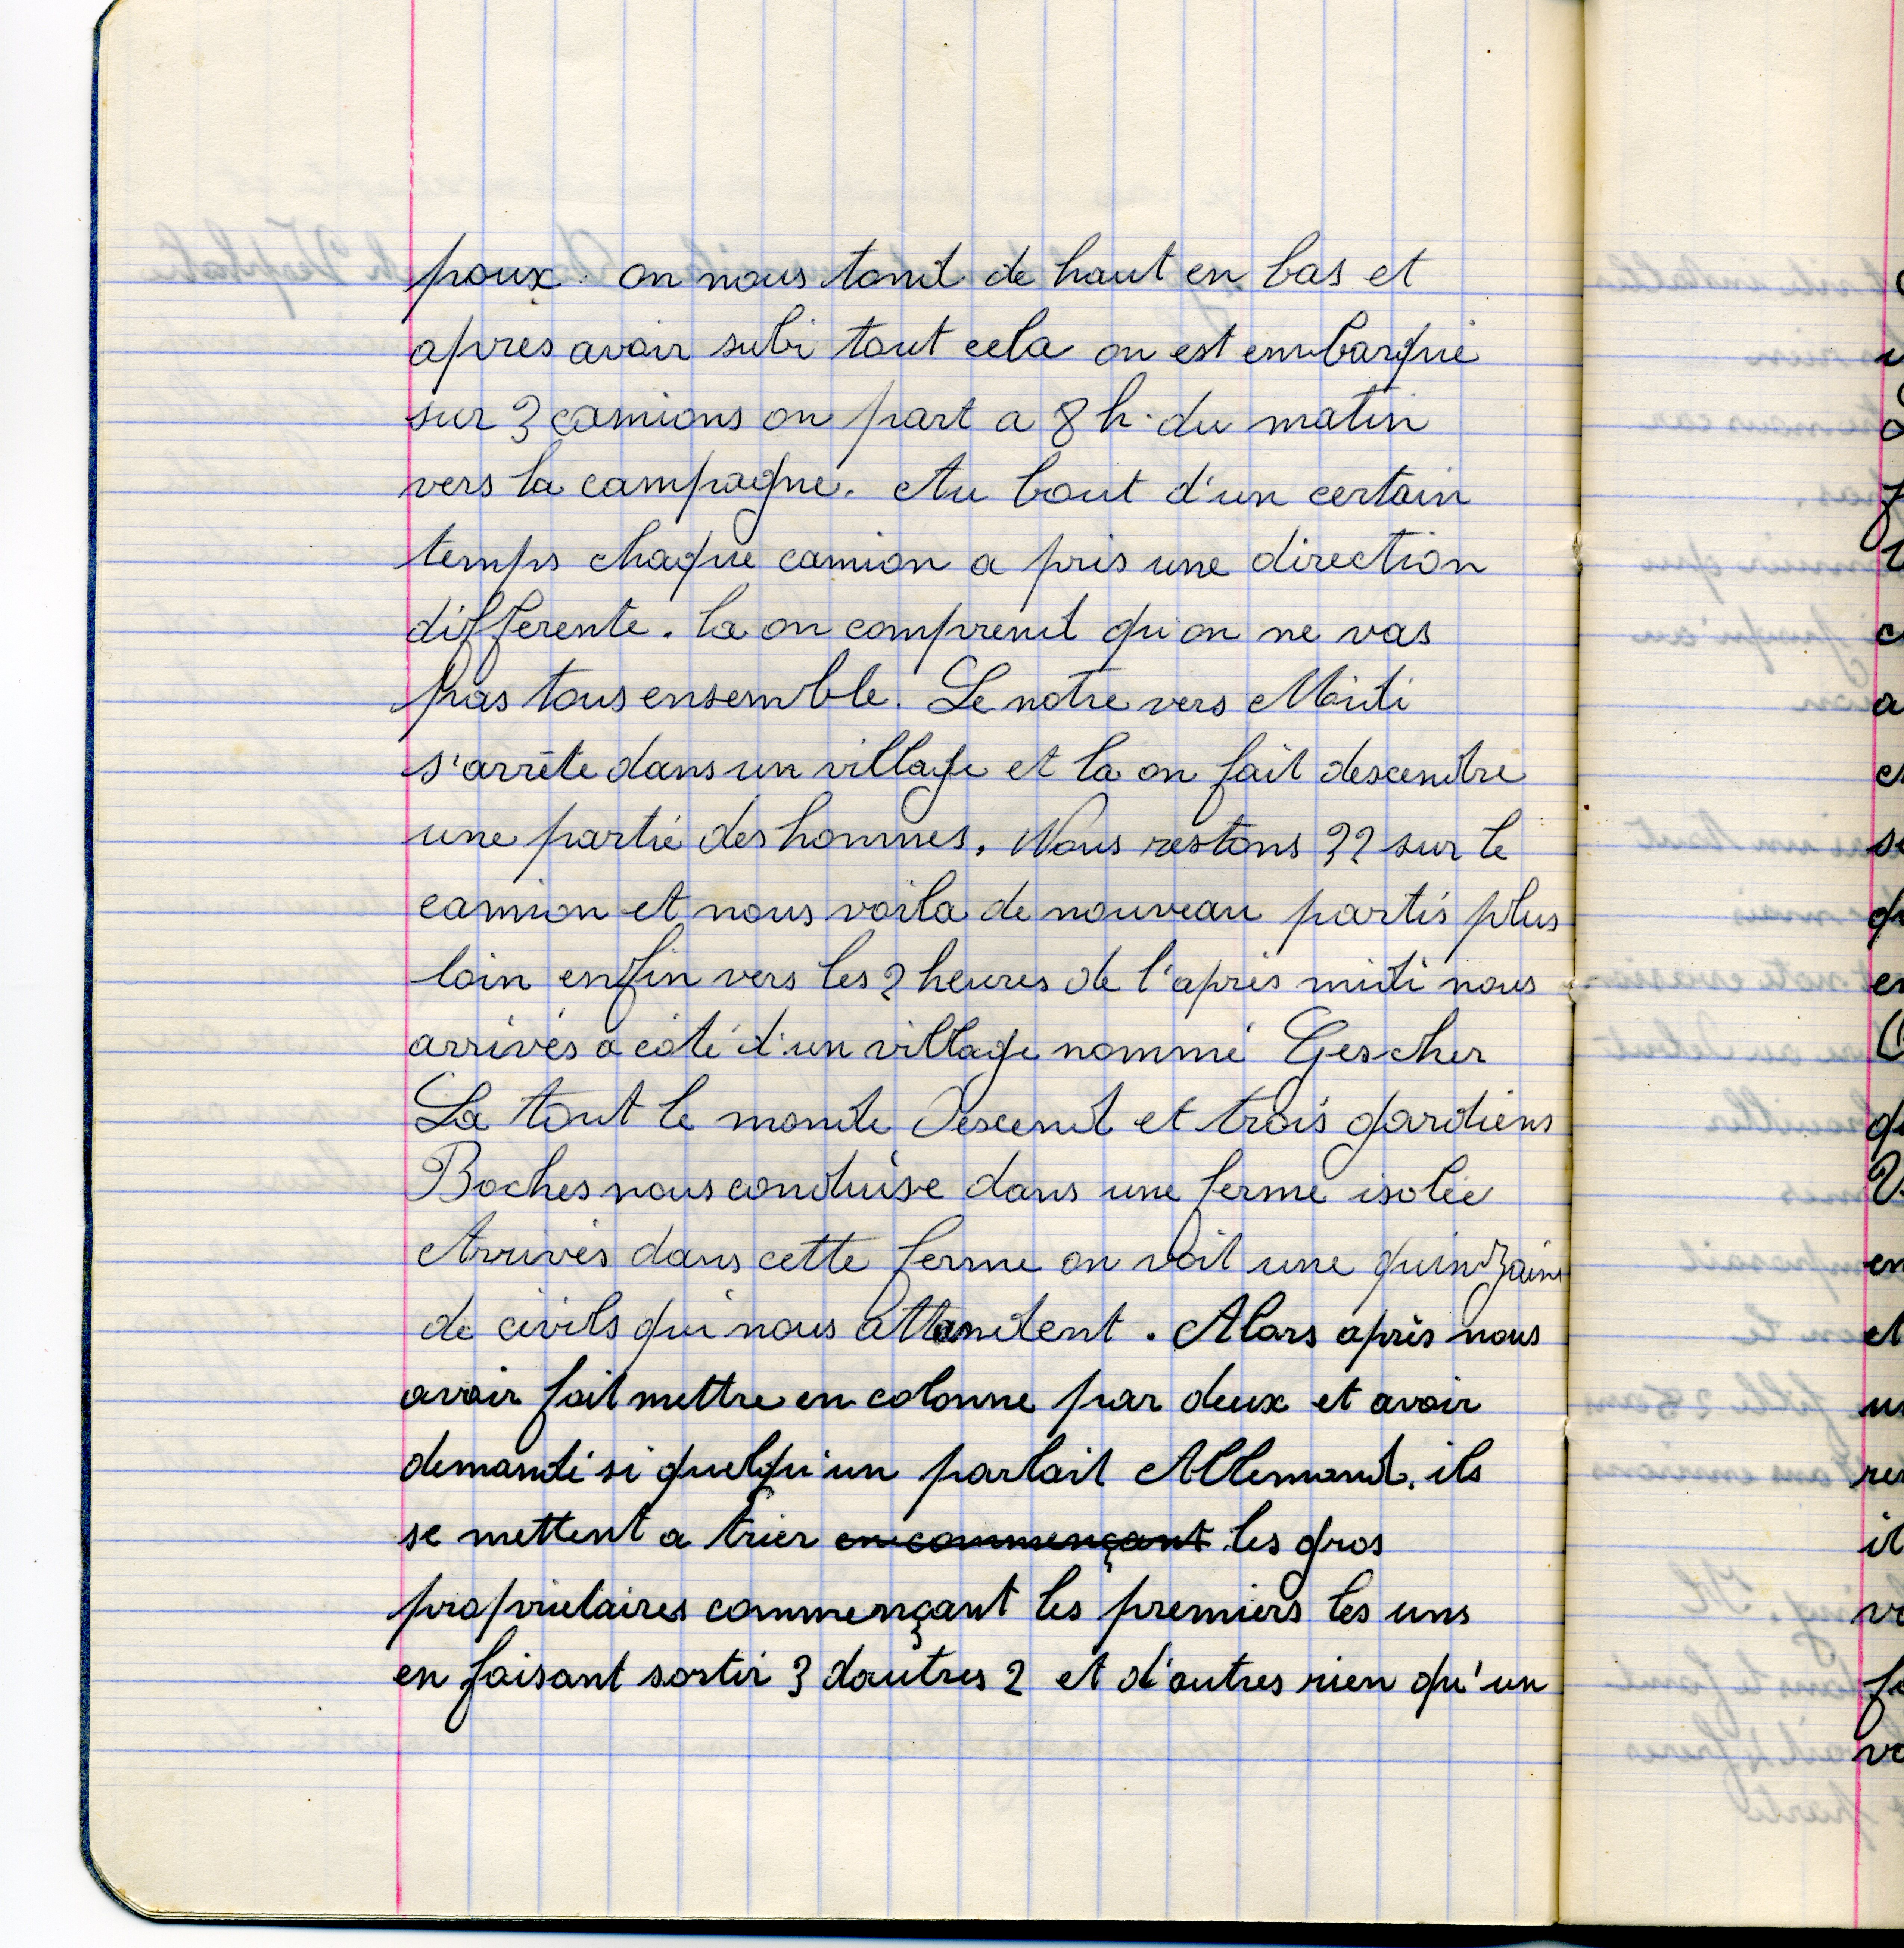 poux. on nous tond de haut en bas et
après avoir subi tout cela on est embarqué
sur 3 camions on part a 8 h. du matin
vers la campagne. Au bout d'un certain
temps chaque camion a pris une direction
différente. la on comprend qu'on ne vas
pas tous ensemble. Le notre vers Midi
s'arrête dans un village et la on fait descendre
une partie des hommes. Nous restons 32 sur le
camion et nous voila de nouveau partis plus
loin enfin vers les 2 heures de l'après midi nous
arrivés a côté d'un village nommé Gescher
La tout le monde Descend et trois gardiens
Boches nous conduise dans une ferme isolée
Arrivés dans cette ferme on voit une quinzaine
de civils qui nous attandent. Alors après nous
avoir fait mettre en colonne par deux et avoir
demandé si quelqu'un parlait Allemand. ils
se mettent a trier en commençant les gros
propriétaires commençant les premiers les uns
en faisant sortir 3 dautres 2 et d'autres rien qu'un